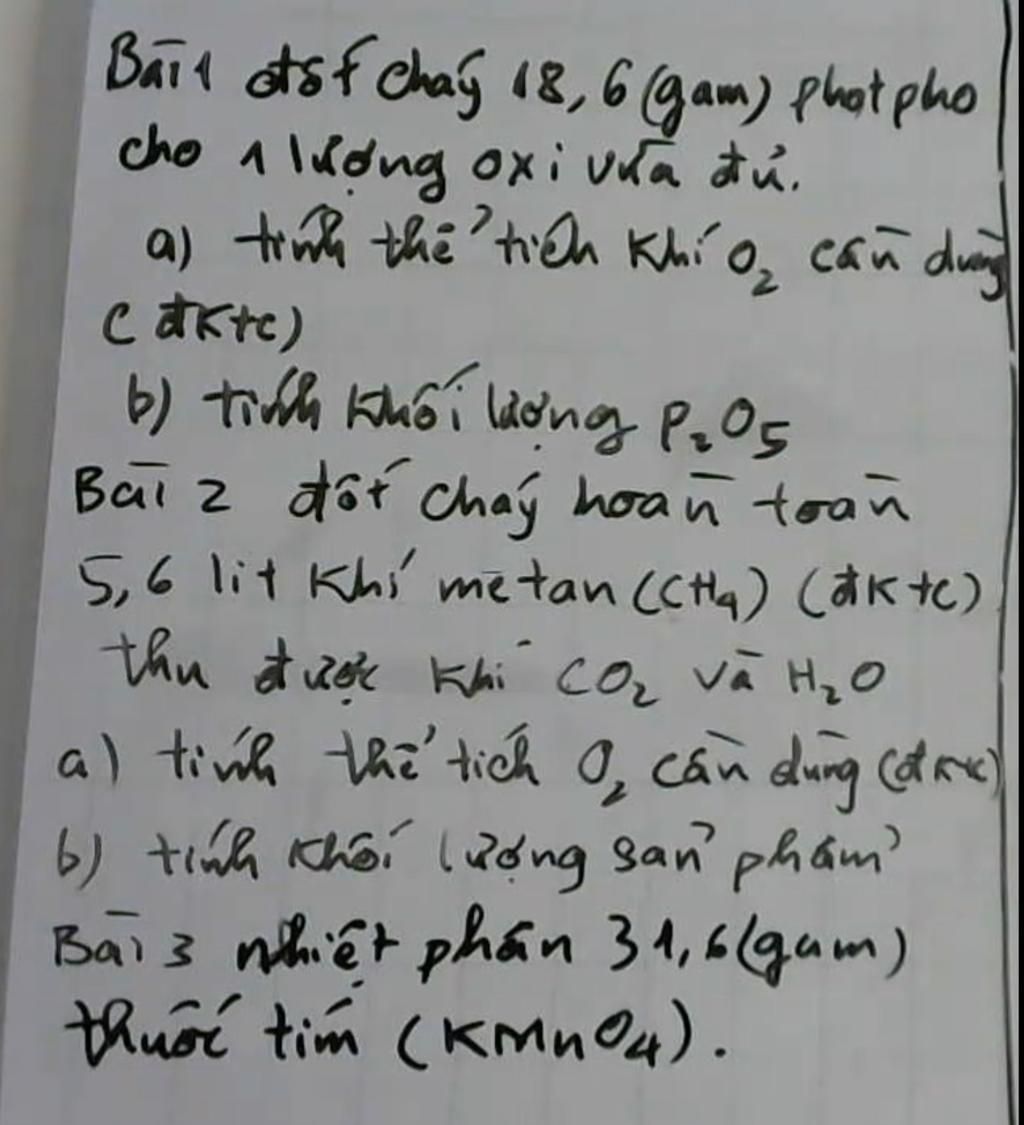 Bài 1 đốt cháy 18,6 (gam) phot pho
cho 1 lượng oxi vừa đủ.
a) tính thể tích khí O₂ cần dùng
(đktc)
b) tính khối lượng P₂O₅
Bài 2 đốt cháy hoàn toàn
5,6 lit khí mêtan (CH₄) (đktc)
thu được khí CO₂ và H₂O
a) tính thể tích O₂ cần dùng (đktc)
b) tính khối lượng sản phẩm
Bài 3 nhiệt phân 31,6 (gam)
thuốc tím (KMnO₄).